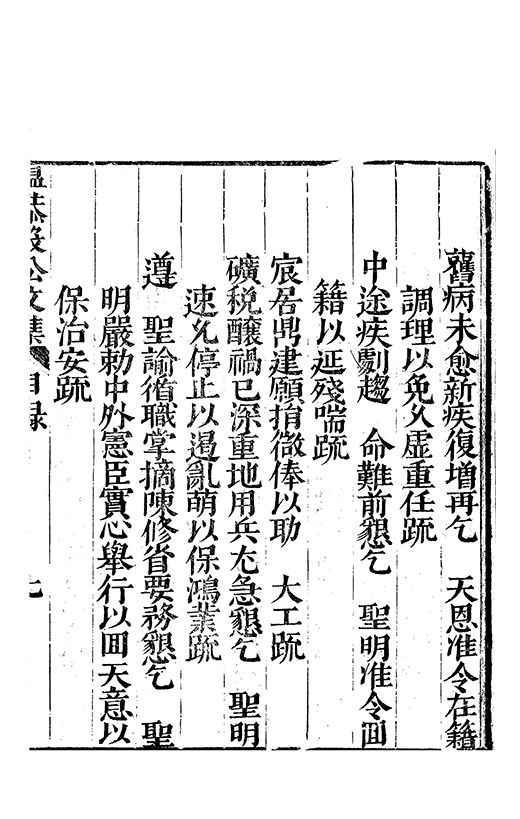 舊病未愈新疾復增再乞　天恩准令在籍
調理以免久虛重任疏
中途疾劇趨　命難前懇乞　聖明准令回
籍以延殘喘疏
宸居鼎建願捐微俸以助　大工疏
礦稅釀禍已深重地用兵尤急懇乞　聖明
速允停止以遏亂萌以保鴻業疏
遵　聖諭循職掌摘陳修省要務懇乞　聖
明嚴勅中外憲臣實心舉行以回天意以
保治安疏
溫恭毅公文集　目録　七